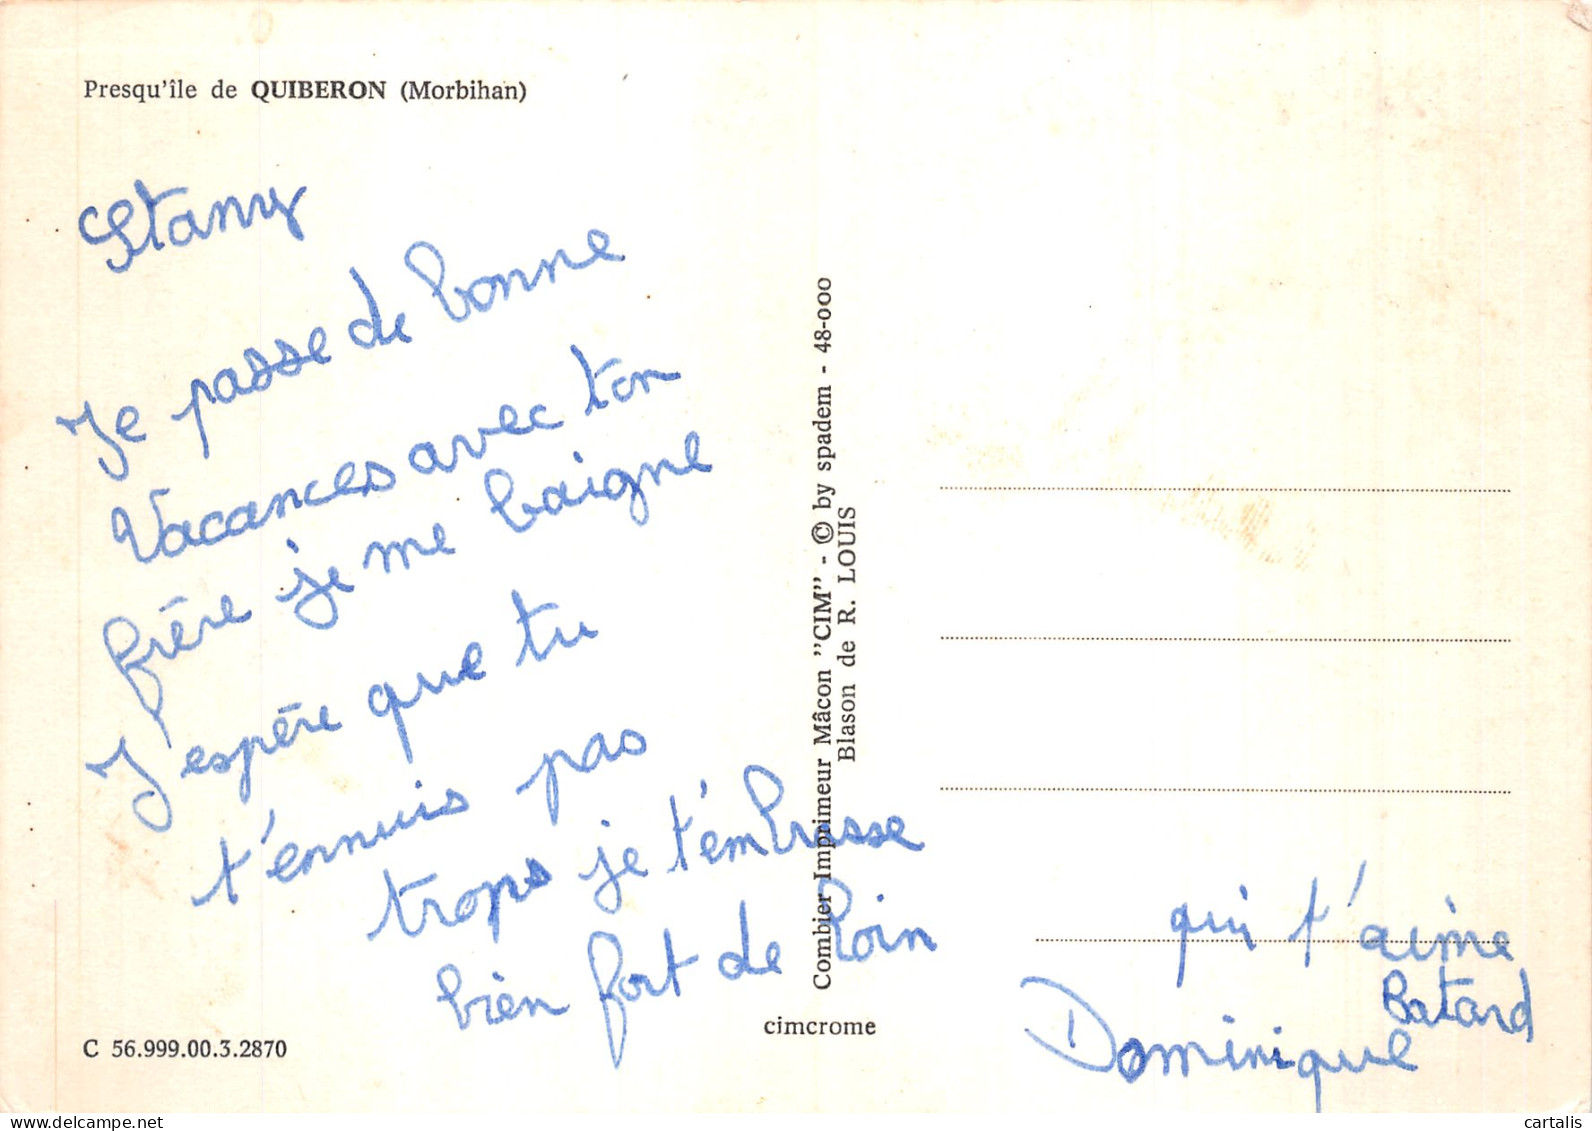 Presqu'île de QUIBERON (Morbihan)
Stany
Je passe de bonne
Vacances avec ton
frère je me baigne
J'espère que tu
t'ennuis pas
trops je t'embrasse
bien fort de loin
qui t'aime
Batard
Dominique
C 56.999.00.3.2870
cimcrome
Combier Imprimeur Mâcon "CIM" - © by spadem - 48-000
Blason de R. LOUIS
delcampe.net
cartalis